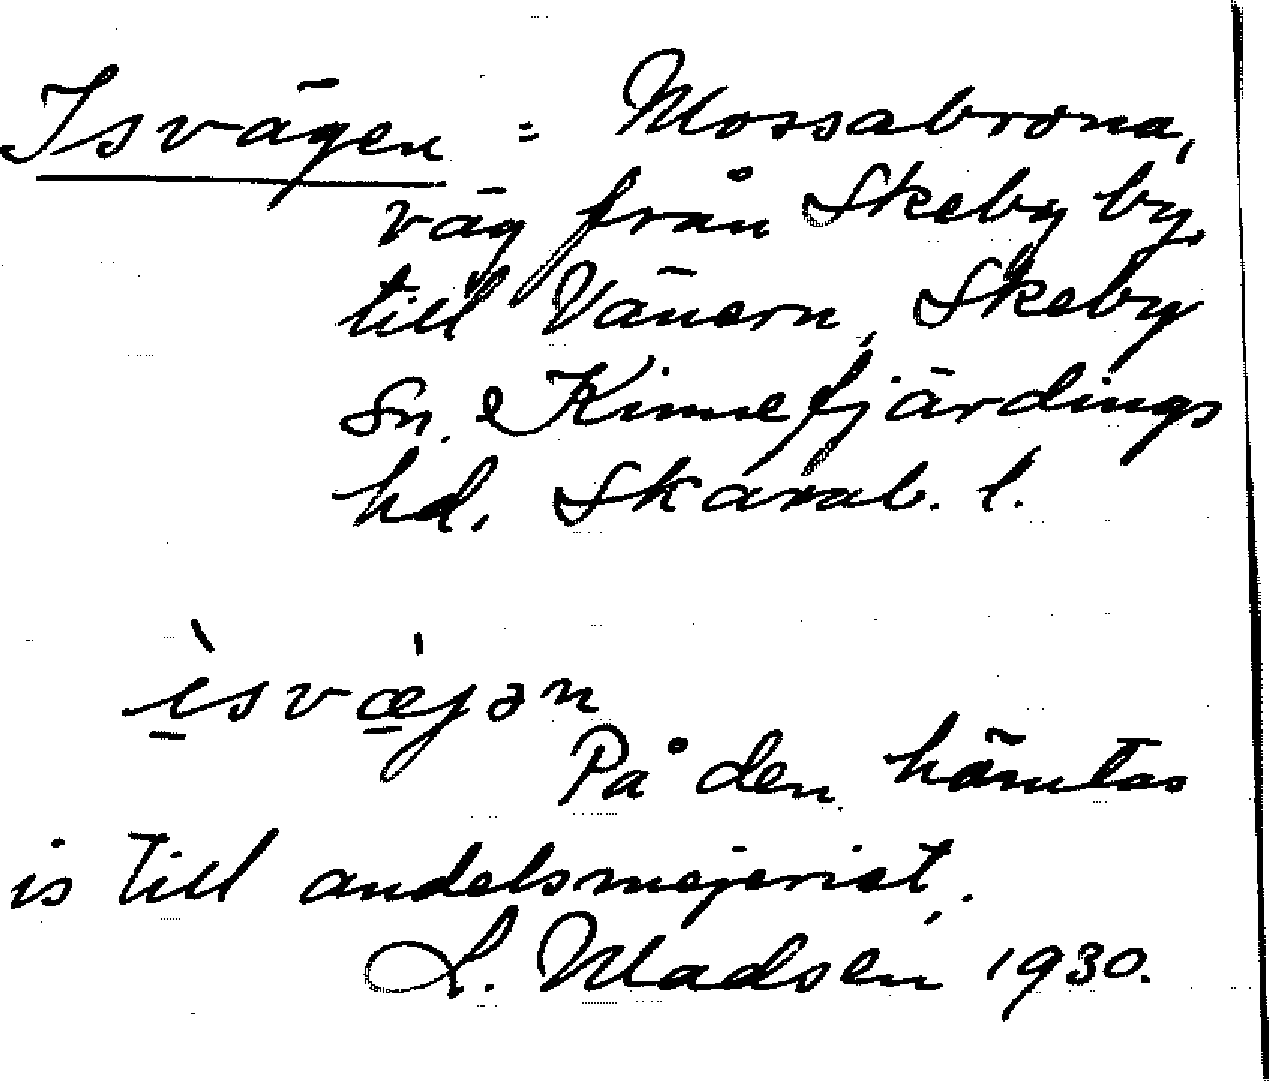 Isvägen = Mossabrona,
väg från Skeby by
till Vänern, Skeby
sn. Kinnefjärdings
hd. Skarab. l.
ìsvæ̍jən
På den hämtas
is till andelsmejeriet.
L. Madsén 1930.